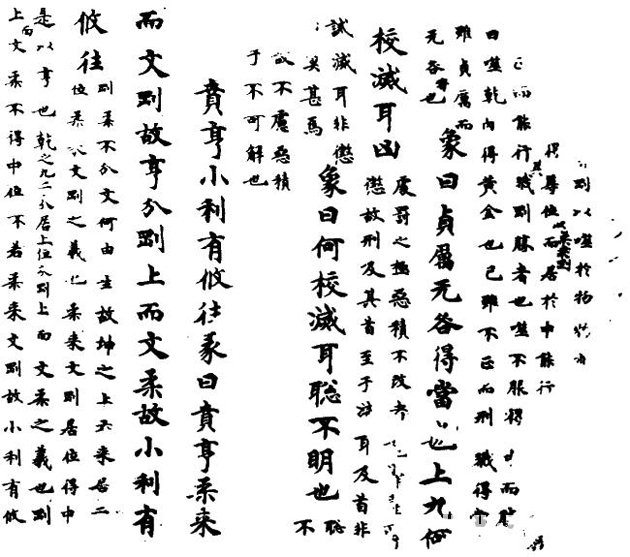 剛以噬於物
得尊位以柔乘剛而居於中能行其
正而能行戮剛勝者也噬不服得中而
曰噬乾肉得黄金也己雖不正而刑戮得
雖貞厲而
无咎者也
象曰貞厲无咎得當也上九何
校滅耳凶
處罰之極惡積不改者也
懲故刑及其首至于滅耳及首非
誡滅耳非懲
凶莫甚焉
象曰何校滅耳聡不明也
聡不
故不慮惡積
于不可解也
賁亨小利有攸往彖曰賁亨柔来
而文剛故亨分剛上而文柔故小利有
攸往
剛柔不分文何由生故坤之上六来居二
位柔来文剛之義也柔来文剛居位得中
是以亨也乾之九二分居上位分剛上而文柔之義也剛
上而文柔不得中位不若柔来文剛故小利有攸